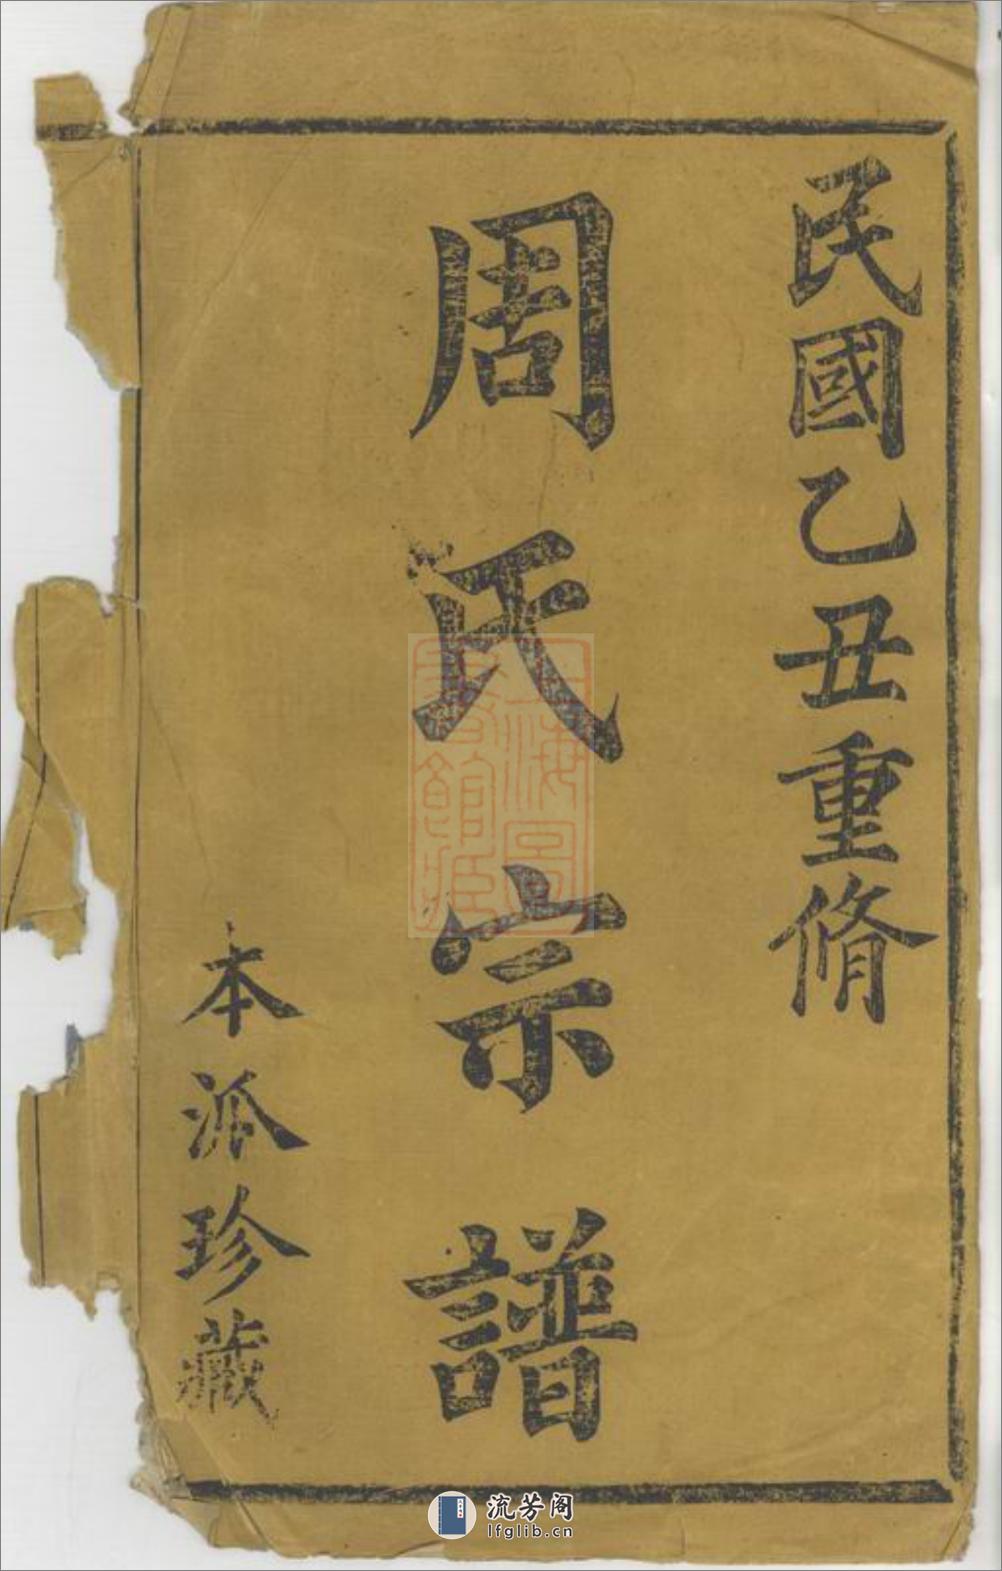 民國乙丑重脩
周氏宗譜
本派珍藏
上海圖書館藏
流芳阁
lfglib.cn